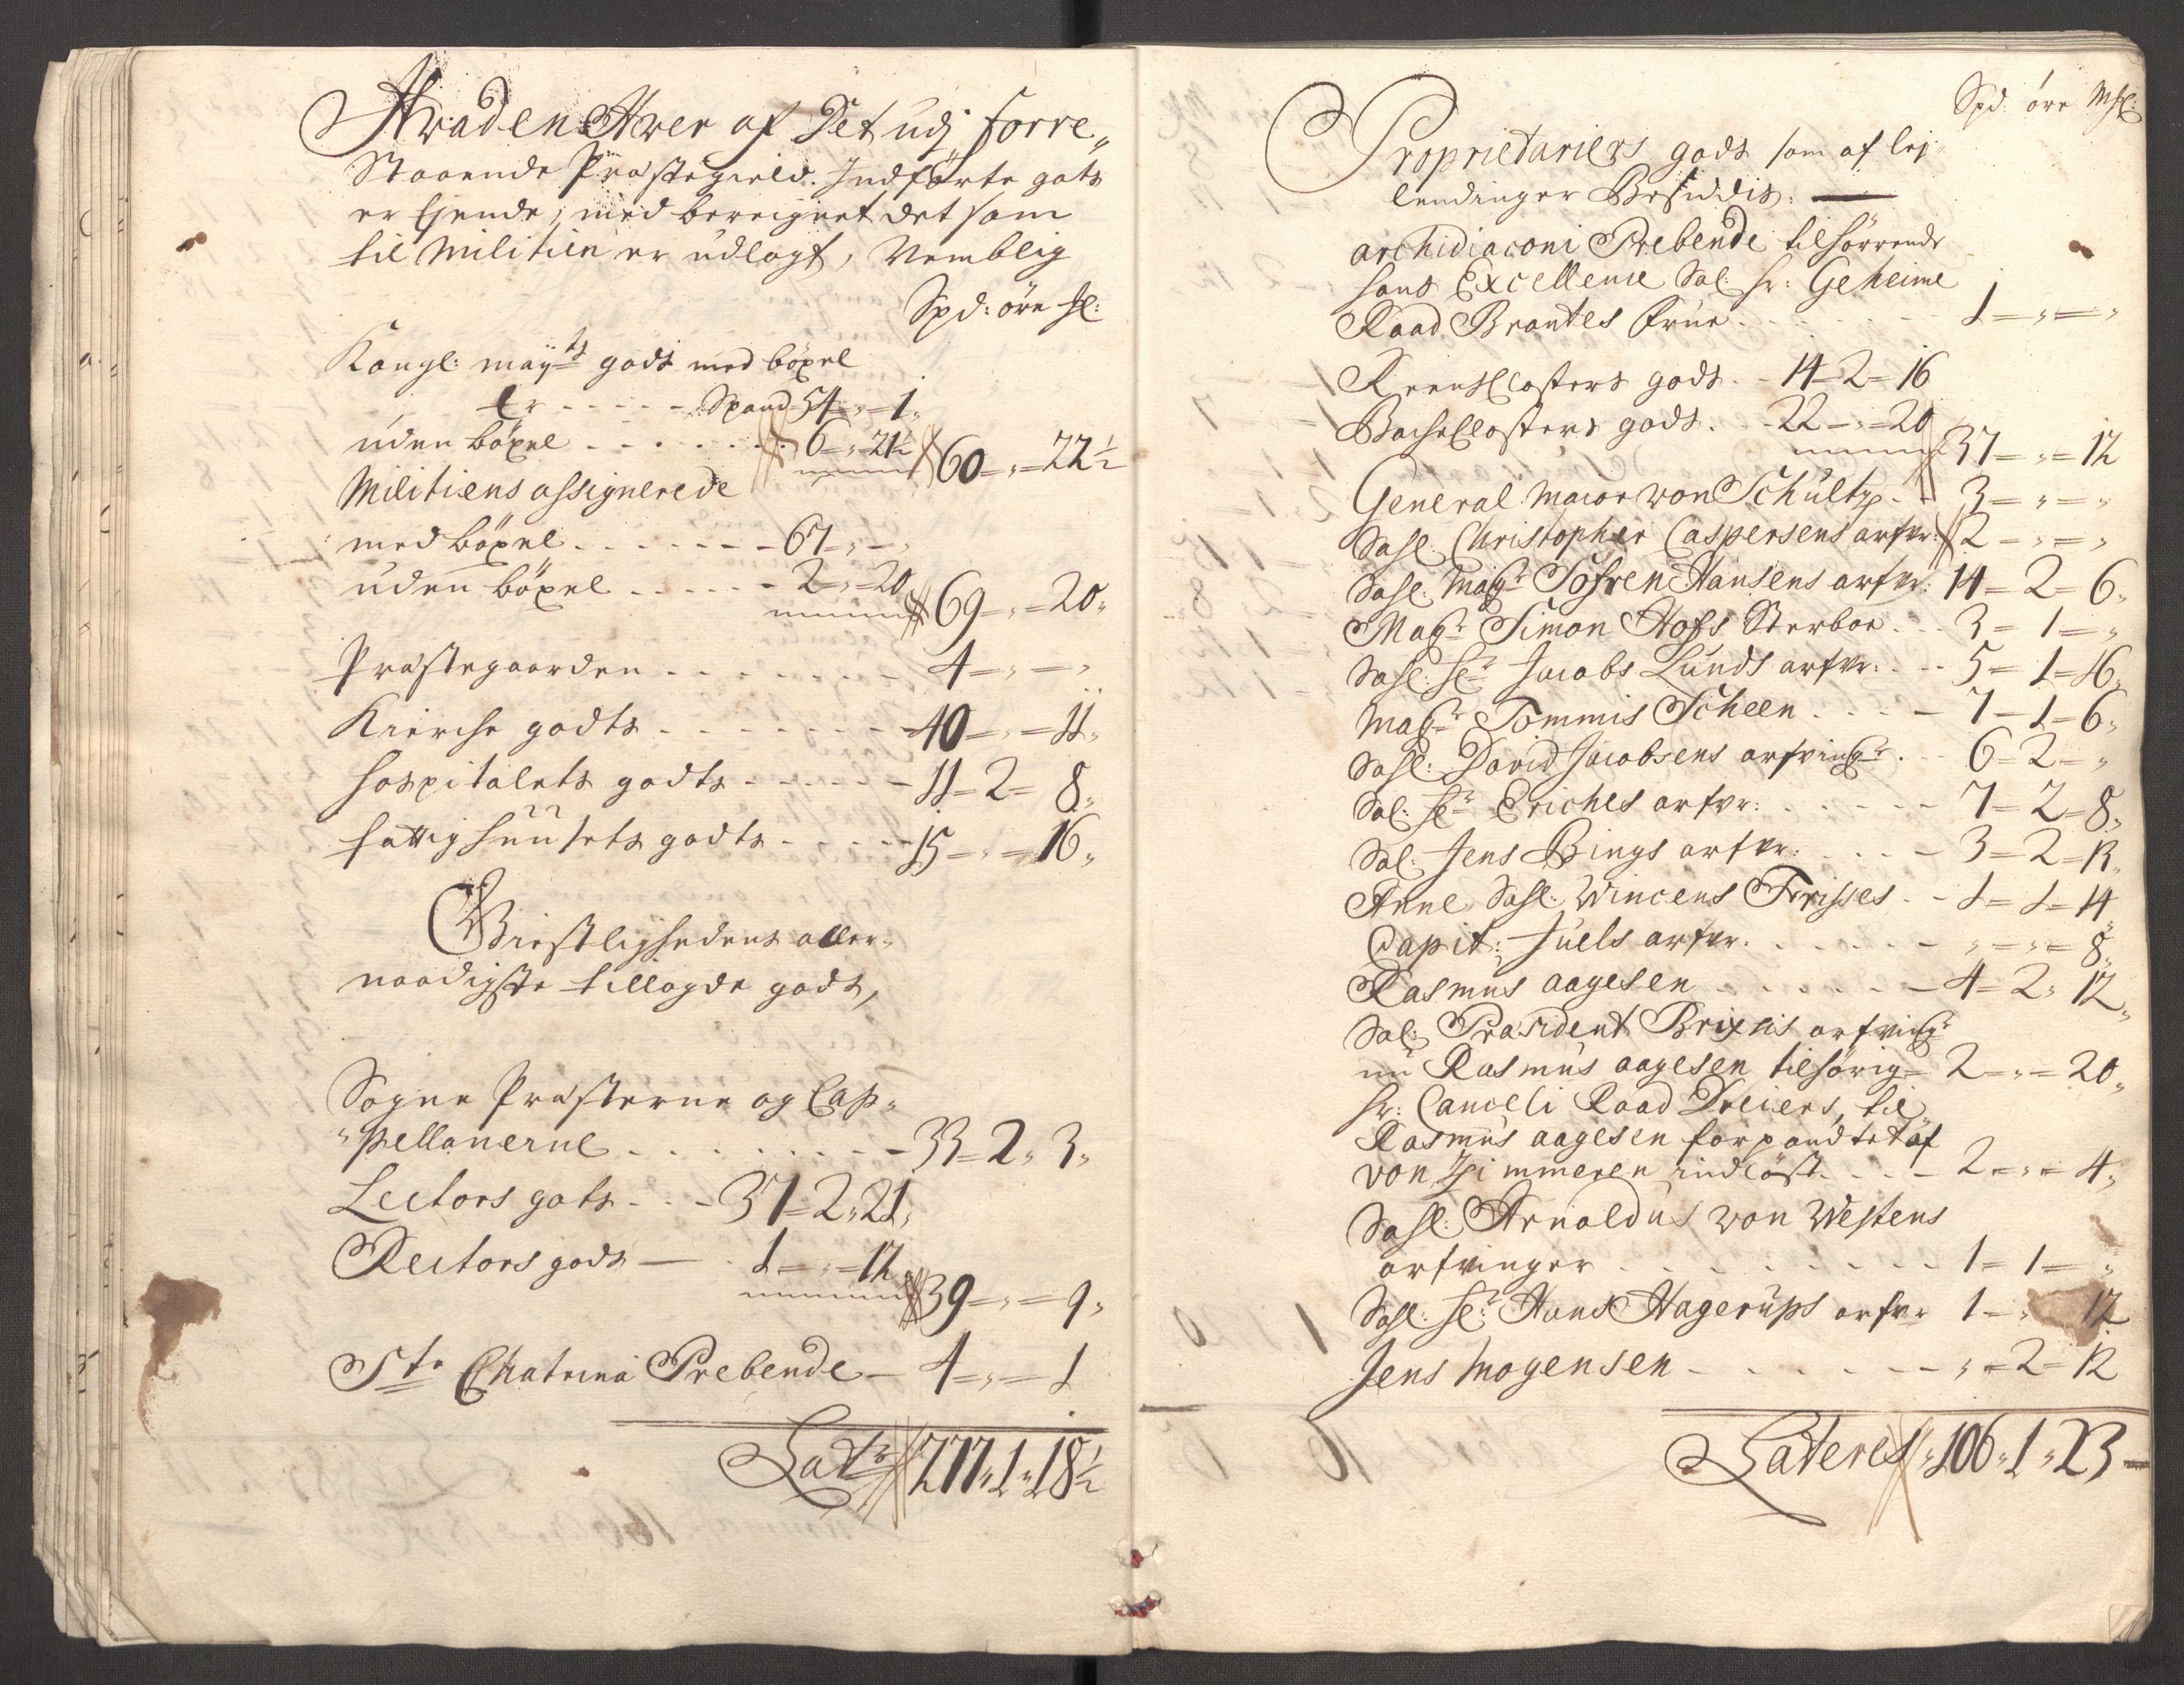 Hvad en Hver af Det udj forre„
Staaende Præstegield. Indförte gots
er Ejende, med beregnet det som
til Militien er udlagt, Nemblig
Spd: öre sl:
Kongl: mayts gods med böxel
Er - - - - - Spand 54 „ 1„
uden böxel - - - - - - 6 „ 21½ 60 „ 22½
Militiens assignerede
med böxel - - - - - - 67 „ „
uden böxel - - - - - 2 „ 20 69 „ 20„
Præstegaarden - - - - - - - 4 „ „
Kirche godts - - - - - - - 40 „ 11„
Hospitalets godts - - - - - 11 = 2 = 8„
fattighuusets godts - - - - - 15 „ 16„
Giestlighedens aller„
naadigste tillagde gods,
Sogne Præsterne og Cap„
„pellanerne - - - - - - - - 33 = 2 „ 3„
Lectors gots - - - 37 = 2 „ 21„
Rectors gods - 1 = „ = 12 39 „ 9„
Ste Chatrina Prebende - 4 „ 1
Latr 277 „ 1 „ 18½
Spd: öre Msl:
Proprietariers gods som af lej
lendinger Besiddis:
archidiaconi Prebende tilhörrende
hans Excellence Sal: Hr: Geheime
Raad Brantes frue - - - - - 1 = „ = „
Reens Closters gods - - 14 = 2 = 16
Bache Closters gods. - 22 = „ = 20 37 = „ = 12
General Maior von Schultz - - 3 = „ = „
Sahl. Christopher Caspersens arfvr: 2 = „ = „
Sahl. Magr Söfren Hansens arfvr: 14 = 2 = 6„
Magr Simon Hofs Sterboe - - 3 = 1 = „
Sahl. Hr Jacobs Lunds arfvr: - - 5 = 1 = 16„
Magr Tommis Scheen - - - - 7 = 1 = 6„
Sahl: David Jacobsens arfvingr - - 6 = 2 = „
Sal: Hr Eriches arfvr: - - - - - 7 = 2 = 8„
Sal: Jens Bings arfvr: - - - - 3 = 2 = 12„
Anne Sahl: Wincens Frisses - - 1 = 1 = 14„
Capit: Juels arfvr. - - - - - „ = „ = 8„
Rasmus aagesen - - - - - - 4 = 2 „ 12„
Sal: Præsident Brixsis arfvingr
nu Rasmus aagesen tilhörig= 2 = „ = 20„
Hr: Canceli Raad Dreiers, til
Rasmus aagesen forpandtet af
von Zimmeren indlöst. - - - 2 = „ = 4„
Sahl: Arnoldus von Westens
arfvinger - - - - - - - - - 1 = 1 = „
Sahl: Hr Hans Hagerups arfvr 1 = „ 12
Jens Mogensen - - - - - - - „ = 2 = 12
Lateres 106 „ 1 „ 23 -